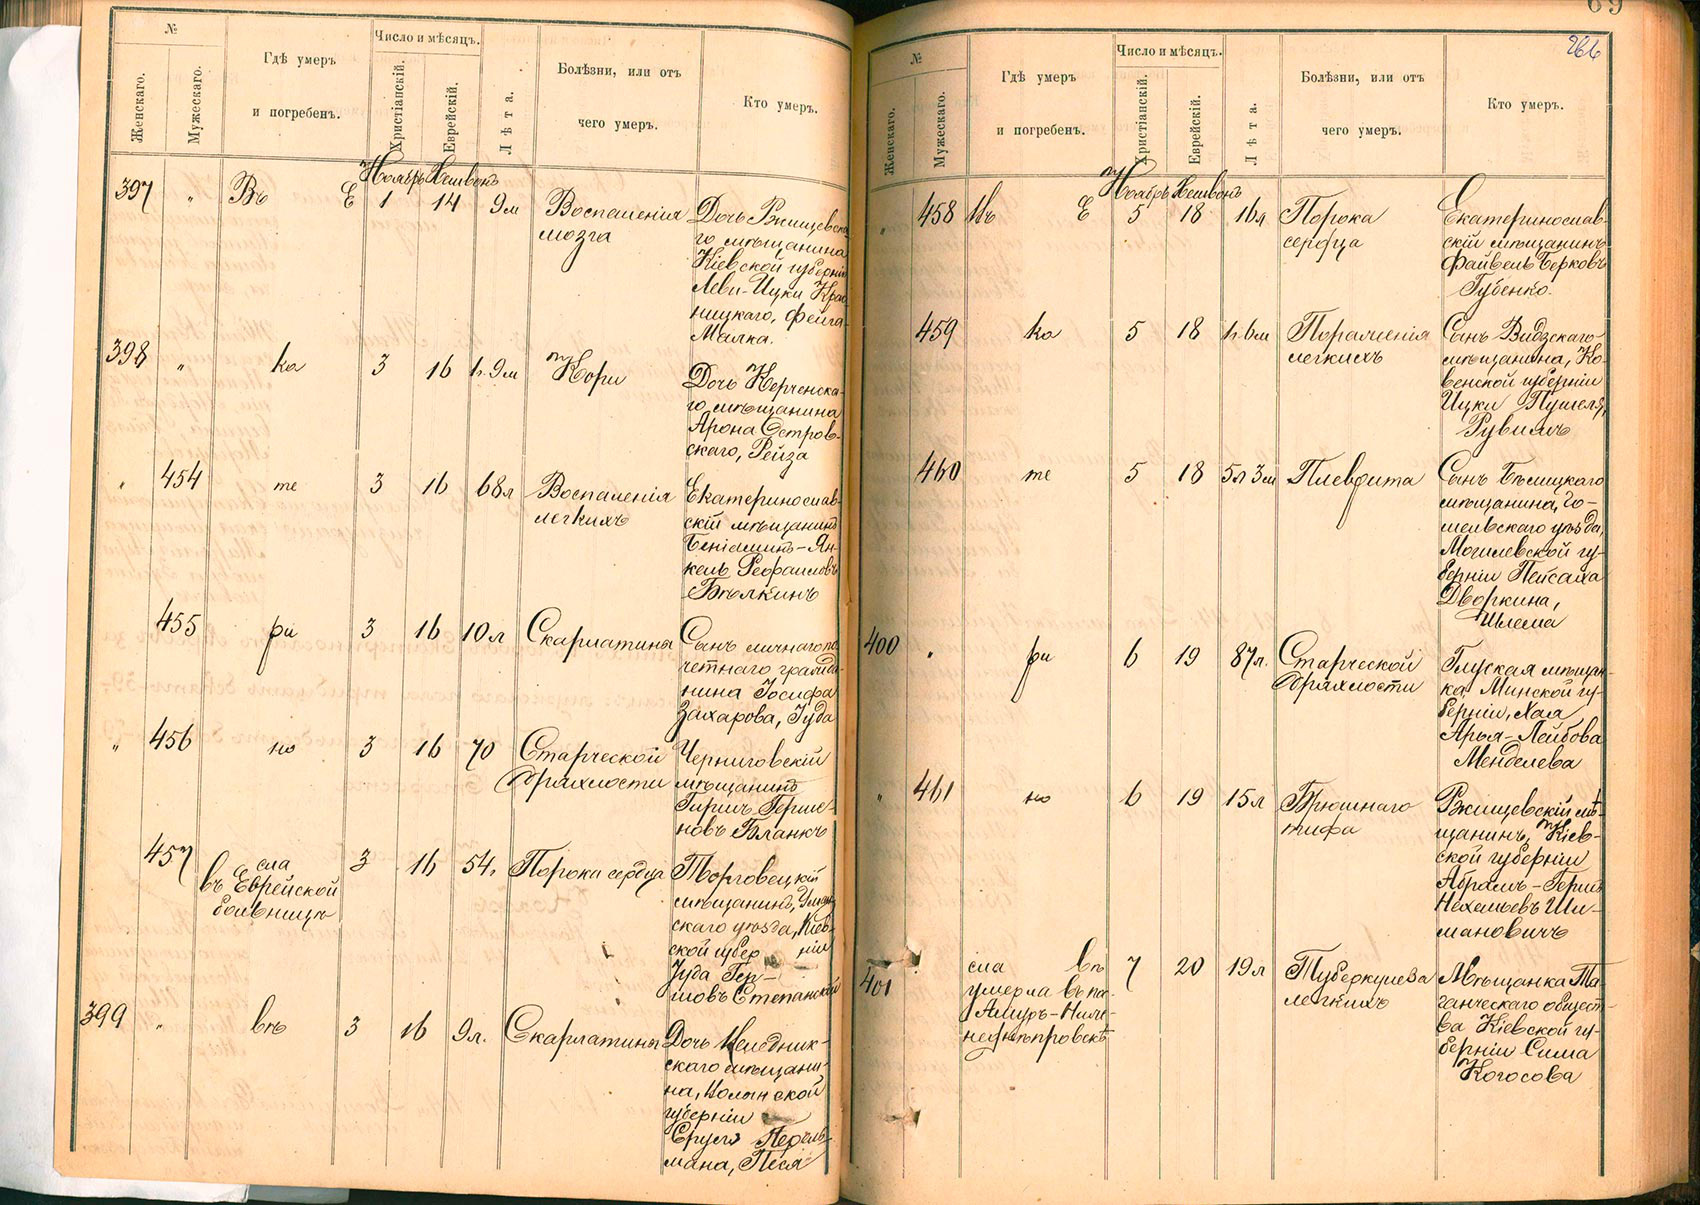 №
Женскаго.
Мужескаго.
Гдѣ умеръ
и погребенъ.
Число и мѣсяцъ.
Христіанскій.
Еврейскій.
Лѣта.
Болѣзни, или отъ
чего умеръ.
Кто умеръ.
Ноябрь Хешвонъ
397 " Въ Е 1 14 9 м
Воспаленія
мозга
Дочь Ржищевска-
го мѣщанина
Кіевской губерніи
Леви-Ицки Крас-
ницкаго, Фейга-
Малка.
398 " ка 3 16 1 г. 9 м
Кори
Дочь Керченска-
го мѣщанина
Арона Остров-
скаго, Рейза
" 454 те 3 16 68 л
Воспаленія
легкихъ
Екатеринослав-
скій мѣщанинъ
Беніаминъ-Ян-
кель Рефаиловъ
Бѣлкинъ
455 ри 3 16 10 л
Скарлатины
Сынъ личнаго по-
четнаго гражда-
нина Іосифа
Захарова, Іуда
" 456 но 3 16 70
Старческой
дряхлости
Черниговскій
мѣщанинъ
Гиршъ Герше-
новъ Бланкъ
457 сла 3 16 54.
въ Еврейской
больницѣ
Порока сердца
Торговецкій
мѣщанинъ, Уман-
скаго уѣзда, Кіев-
ской губерніи
Іуда Гер-
шовъ Степанскій
399 " въ 3 16 9 л.
Скарлатины
Дочь
скаго мѣщани-
на, Волынской
губерніи
Сруля Перель-
мана, Песя
69
266
№
Женскаго.
Мужескаго.
Гдѣ умеръ
и погребенъ.
Число и мѣсяцъ.
Христіанскій.
Еврейскій.
Лѣта.
Болѣзни, или отъ
чего умеръ.
Кто умеръ.
Ноябрь Хешвонъ
" 458 Въ Е 5 18 16 л.
Порока
сердца
Екатеринослав-
скій мѣщанинъ
Файвель Берковъ
Губенко.
459 ка 5 18 1 г. 6 м
Пораженія
легкихъ
Сынъ Видзскаго
мѣщанина, Ко-
венской губерніи
Ицки
Рувимъ
460 те 5 18 5 л 3 м
Плеврита
Сынъ Бѣлицкаго
мѣщанина, Го-
мельскаго уѣзда,
Могилевской гу-
берніи Пейсаха
Дворкина,
Шлема
400 " ри 6 19 87 л.
Старческой
дряхлости
Глуская мѣщан-
ка, Минской гу-
берніи, Хая
Арья-Лейбова
Менделева
" 461 но 6 19 15 л
Брюшнаго
тифа
Ржищевскій мѣ-
щанинъ, Кіев-
ской губерніи
Абрамъ-Гершъ
Нехемьевъ Ши-
мановичъ
401 сла въ 7 20 19 л
умерла въ пос.
Амуръ-Ниж-
неднѣпровскѣ
Туберкулеза
легкихъ
Мѣщанка Та-
ганческаго общест-
ва Кіевской гу-
берніи Сима
Когосова